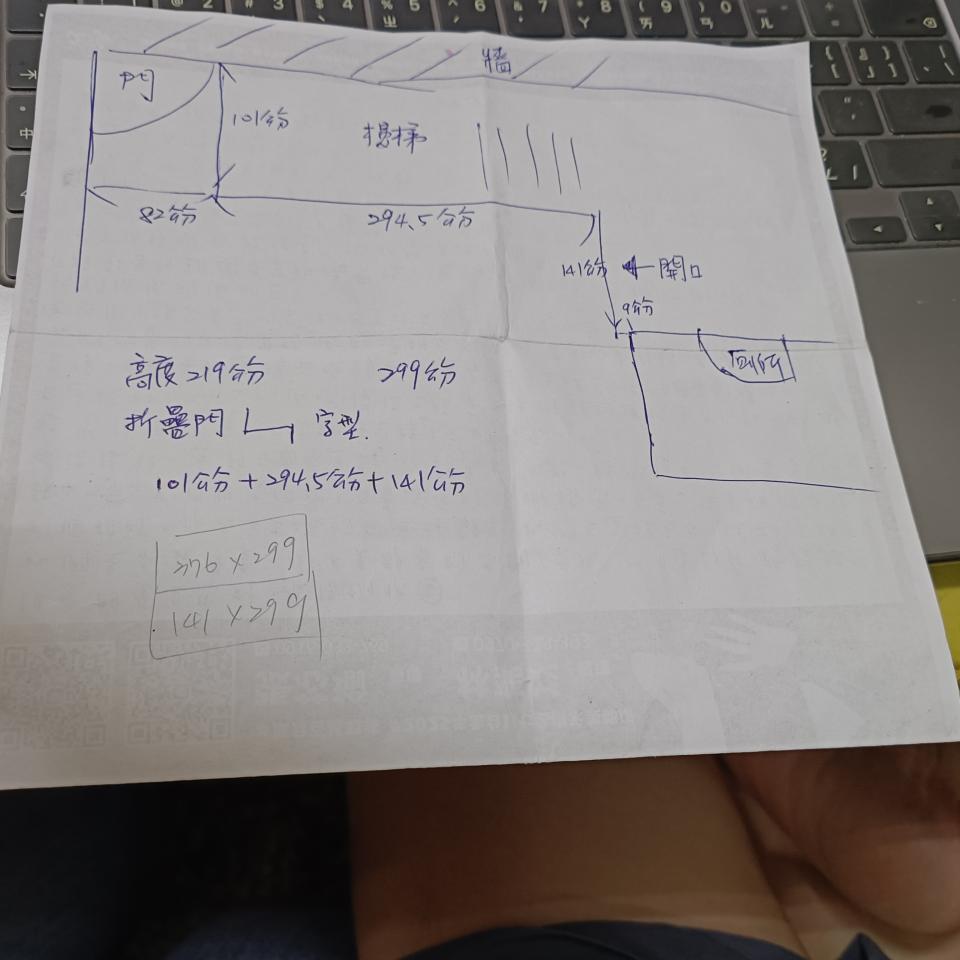 牆
門
101公分
樓梯
82公分
294.5公分
141公分 ← 開口
9公分
高度219公分 299公分
折疊門 字型.
101公分+294.5公分+141公分
376×299
141×299